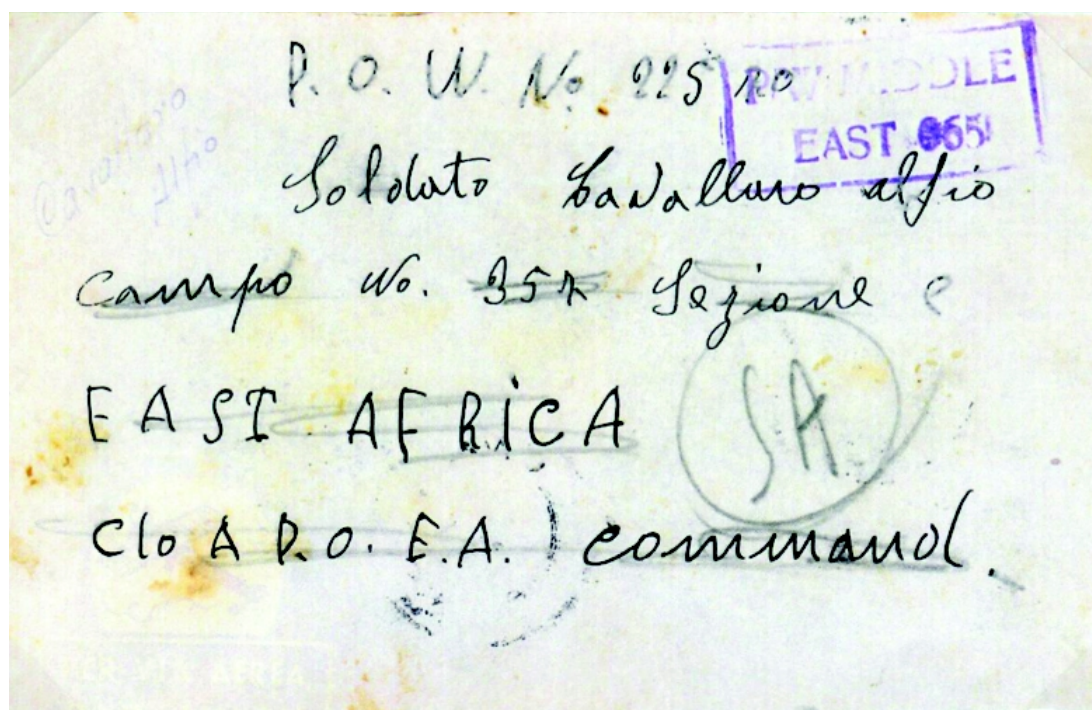 P. O. W. No. 22520
P/W MIDDLE
EAST 965
Soldato Cavallaro Alfio
Campo No. 357 Sezione e
EAST AFRICA
SA
C/o A P.O. E.A. Command.